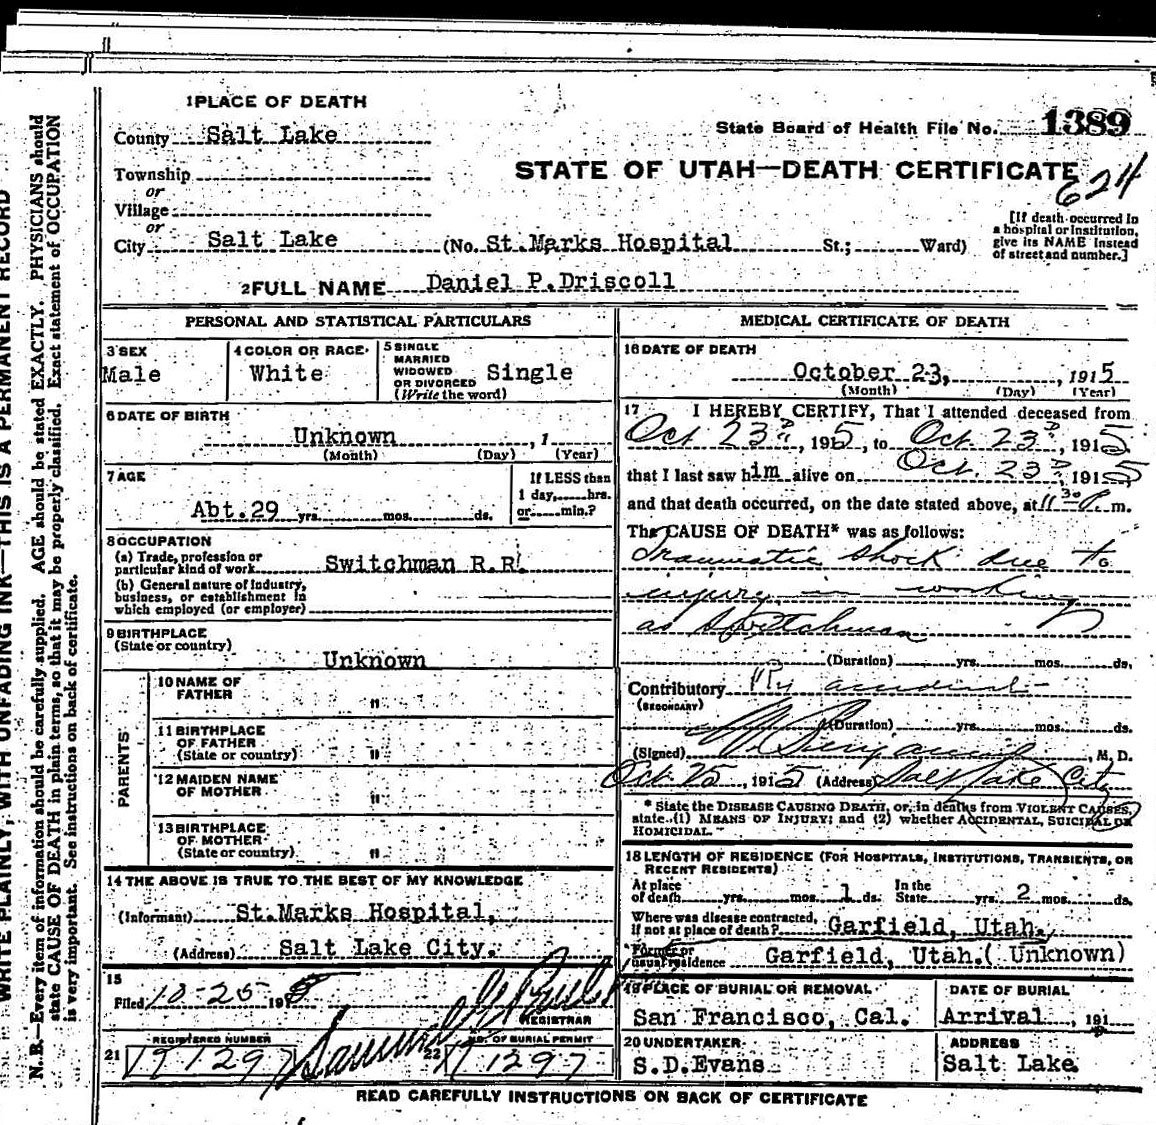 1 PLACE OF DEATH
County Salt Lake
State Board of Health File No. 1389
STATE OF UTAH—DEATH CERTIFICATE
624
Township
or
Village
or
City Salt Lake (No. St.Marks Hospital St.; Ward)
[If death occurred in
a hospital or institution,
give its NAME instead
of street and number.]
2 FULL NAME Daniel P.Driscoll
PERSONAL AND STATISTICAL PARTICULARS
3 SEX
Male
4 COLOR OR RACE
White
5 SINGLE
MARRIED
WIDOWED
OR DIVORCED
(Write the word)
Single
6 DATE OF BIRTH
Unknown , 1
(Month) (Day) (Year)
7 AGE
Abt.29 yrs. mos. ds.
If LESS than
1 day, hrs.
or min.?
8 OCCUPATION
(a) Trade, profession or
particular kind of work Switchman R.R.
(b) General nature of industry,
business, or establishment in
which employed (or employer)
9 BIRTHPLACE
(State or country)
Unknown
PARENTS
10 NAME OF
FATHER "
11 BIRTHPLACE
OF FATHER
(State or country) "
12 MAIDEN NAME
OF MOTHER "
13 BIRTHPLACE
OF MOTHER
(State or country) "
14 THE ABOVE IS TRUE TO THE BEST OF MY KNOWLEDGE
(Informant) St.Marks Hospital,
(Address) Salt Lake City.
15
Filed 10-25 191
REGISTRAR
REGISTERED NUMBER
21 1297
22 NO. OF BURIAL PERMIT
1297
MEDICAL CERTIFICATE OF DEATH
16 DATE OF DEATH
October 23, , 1915
(Month) (Day) (Year)
17 I HEREBY CERTIFY, That I attended deceased from
Oct 23d, 1915, to Oct. 23d, 1915,
that I last saw him alive on Oct. 23d, 1915,
and that death occurred, on the date stated above, at 11 30 P. m.
The CAUSE OF DEATH* was as follows:
Traumatic shock due to
injury in working
as switchman
(Duration) yrs. mos. ds.
Contributory By accident
(SECONDARY)
(Duration) yrs. mos. ds.
(Signed) , M. D.
Oct 25, 1915 (Address) Salt Lake City
* State the DISEASE CAUSING DEATH, or, in deaths from VIOLENT CAUSES,
state (1) MEANS OF INJURY; and (2) whether ACCIDENTAL, SUICIDAL OR
HOMICIDAL.
18 LENGTH OF RESIDENCE (FOR HOSPITALS, INSTITUTIONS, TRANSIENTS, OR
RECENT RESIDENTS)
At place
of death yrs. mos. 1 ds.
In the
State yrs. 2 mos. ds.
Where was disease contracted,
if not at place of death? Garfield, Utah.
Former or
usual residence Garfield, Utah.( Unknown)
19 PLACE OF BURIAL OR REMOVAL
San Francisco, Cal.
DATE OF BURIAL
Arrival , 191
20 UNDERTAKER
S.D.Evans
ADDRESS
Salt Lake.
READ CAREFULLY INSTRUCTIONS ON BACK OF CERTIFICATE
WRITE PLAINLY, WITH UNFADING INK—THIS IS A PERMANENT RECORD
N. B.—Every item of information should be carefully supplied. AGE should be stated EXACTLY. PHYSICIANS should
state CAUSE OF DEATH in plain terms, so that it may be properly classified. Exact statement of OCCUPATION
is very important. See instructions on back of certificate.